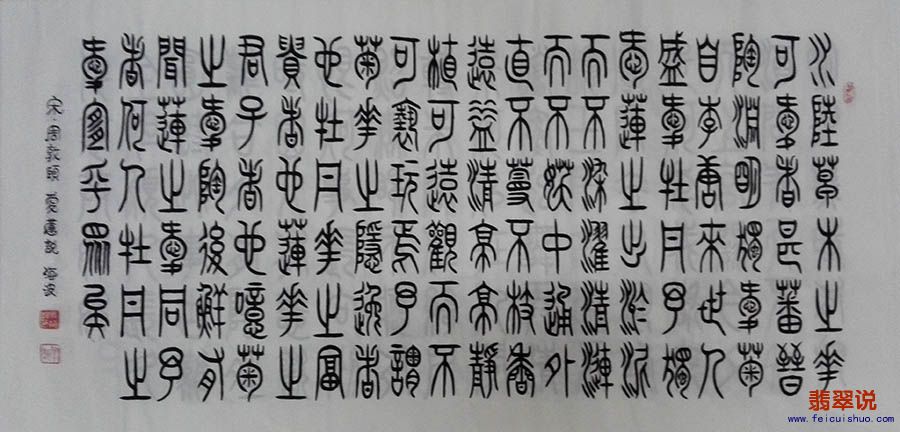 水陸草木之華
可愛者甚蕃晉
陶淵明獨愛菊
自李唐來世人
盛愛牡丹予獨
愛蓮之出淤泥
而不染濯清漣
而不妖中通外
直不蔓不枝香
遠益清亭亭靜
植可遠觀而不
可褻玩焉予謂
菊華之隱逸者
也牡丹華之富
貴者也蓮華之
君子者也噫菊
之愛陶後鮮有
聞蓮之愛同予
者何人牡丹之
愛宜乎眾矣
宋·周敦頤 愛蓮說
翡翠说
www.feicuishuo.com